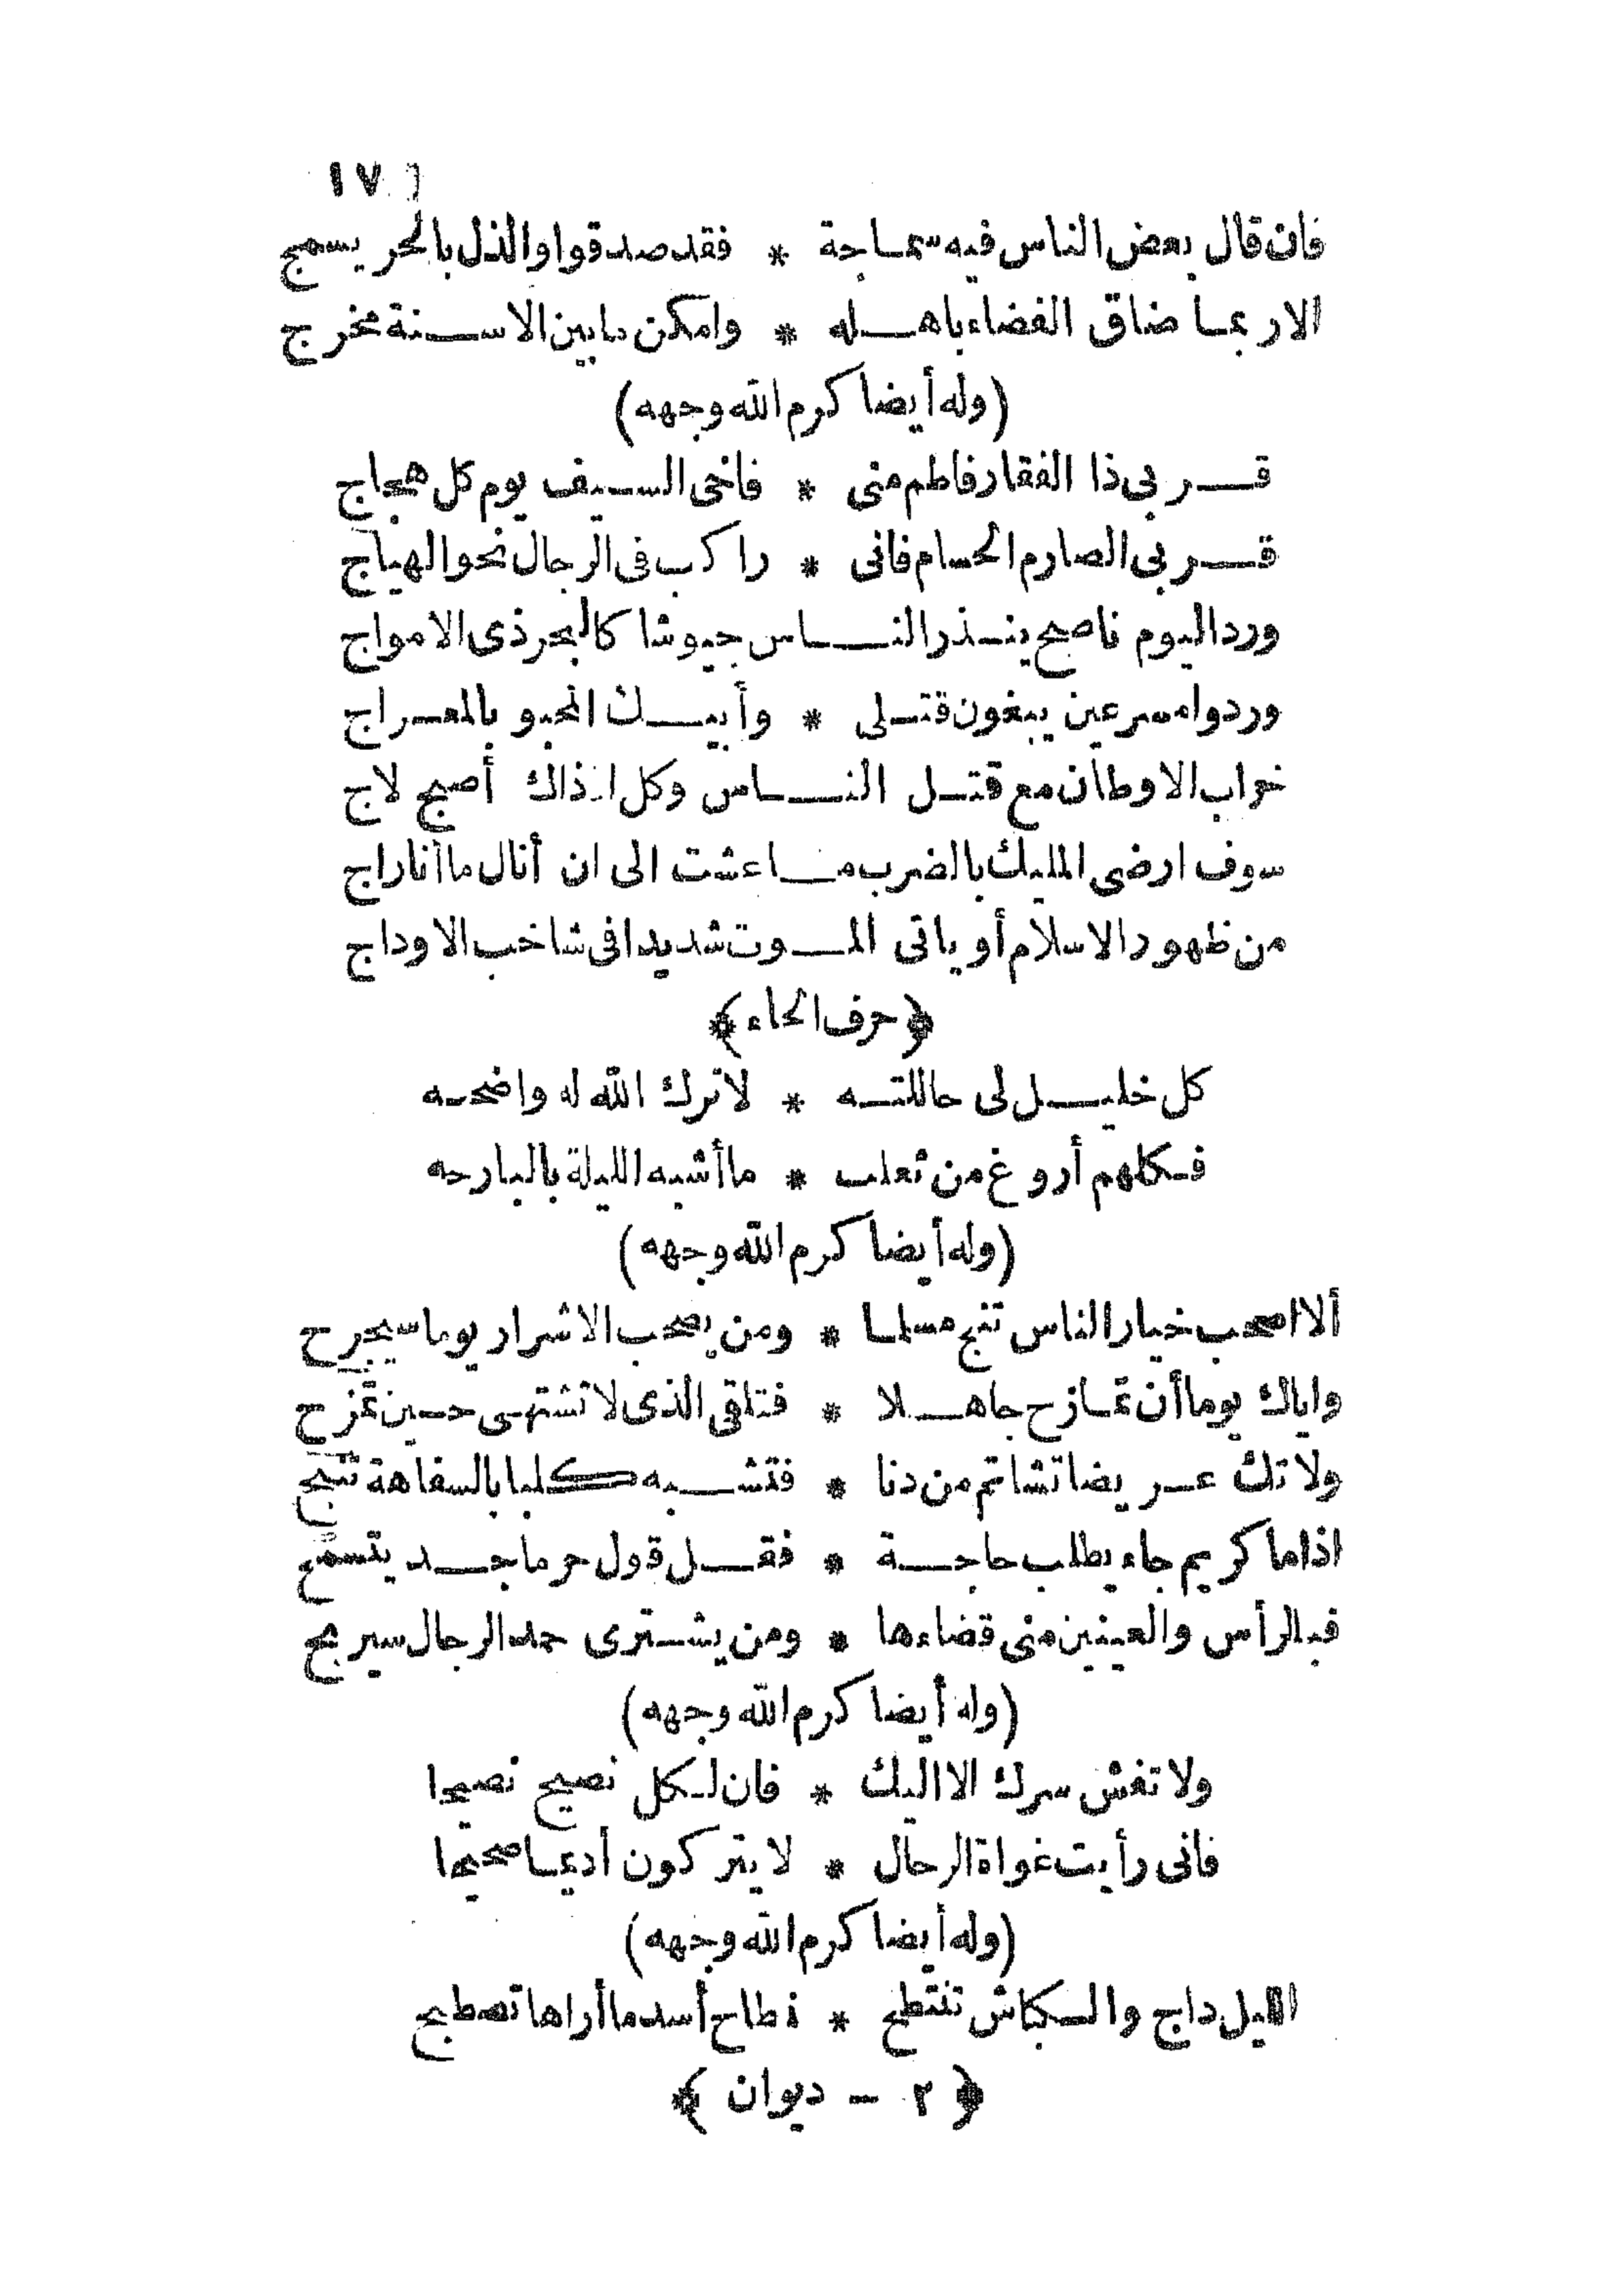 ١٧
فان قال بعض الناس فيه سماجة * فقد صدقوا والذل بالحر يسمج
الا ربما ضاق الفضاء باهله * وامكن ما بين الاسنة مخرج
(وله أيضا كرم الله وجهه)
قربى ذا الفقار فاطم منى * فاخى السيف يوم كل هجاج
قربى الصارم الحسام فانى * راكب فى الرجال نحو الهياج
ورد اليوم ناصح ينذر الناس جيوشا كالبحر ذى الامواج
وردوا مسرعين يبغون قتلى * وأبيك المحبو بالمعراج
خراب الاوطان مع قتل الناس وكل اذاك أصبح لاج
سوف ارضى المليك بالضرب ما عشت الى ان أنال ما أنا راج
من ظهور الاسلام أو ياتى الموت شديدا فى شاخب الاوداج
﴿ حرف الحاء ﴾
كل خليل لى حاللته * لا ترك الله له واضحه
فكلهم أروغ من ثعلب * ما أشبه الليلة بالبارحه
(وله أيضا كرم الله وجهه)
ألا اصحب خيار الناس تنج مسلما * ومن يصحب الاشرار يوما سيجرح
واياك يوما أن تمازح جاهلا * فتلقى الذى لا تشتهى حين تمزح
ولا تك عريضا تشاتم من دنا * فتشبه كلبا بالسفاهة تنبح
اذا ما كريم جاء يطلب حاجة * فقل قول حر ماجد يتسمح
فبالرأس والعينين منى قضاءها * ومن يشترى حمد الرجال سيربح
(وله أيضا كرم الله وجهه)
ولا تفش سرك الا اليك * فان لكل نصيح نصيحا
فانى رأيت غواة الرجال * لا يتركون أديما صحيحا
(وله أيضا كرم الله وجهه)
الليل داج والكباش تنتطح * نطاح أسد ما أراها تصطلح
﴿ ٢ - ديوان ﴾